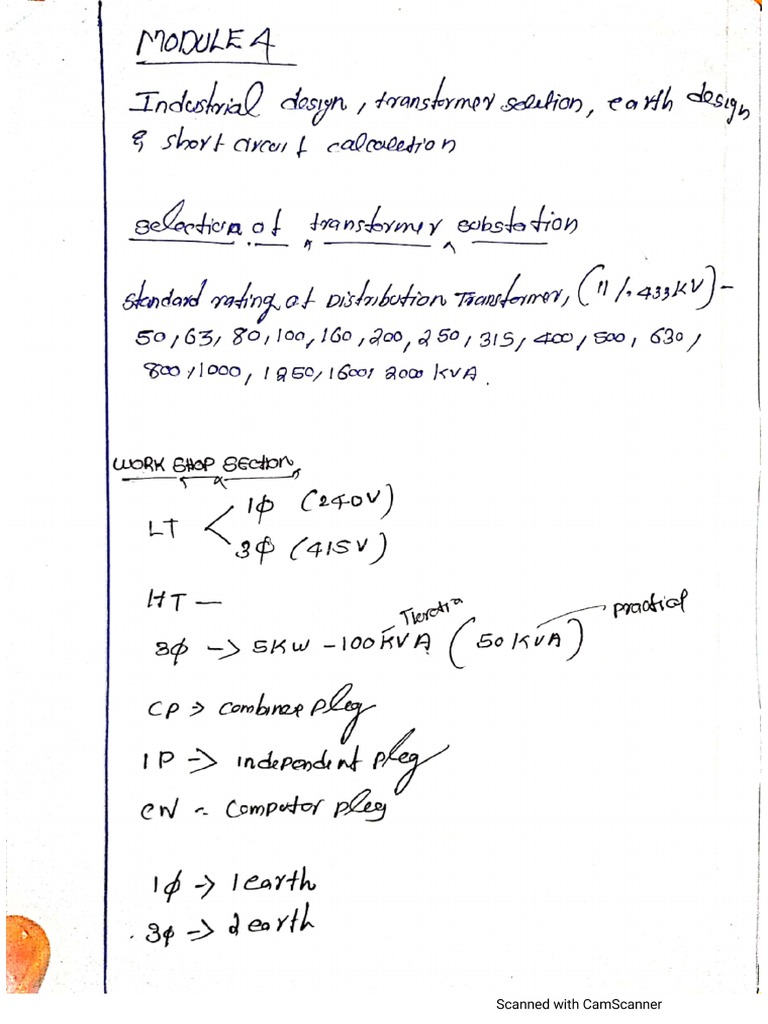 MODULE 4
Industrial design, transformer selection, earth design
& short circuit calculation
selection of transformer substation
standard rating of Distribution Transformer, (11/.433KV) -
50, 63, 80, 100, 160, 200, 250, 315, 400, 500, 630,
800, 1000, 1250, 1600, 2000 KVA.
WORK SHOP SECTION
1φ (240V)
LT
3φ (415V)
HT —
practical
3φ -> 5KW - 100 KVA (50 KVA)
CP => combine pleg
IP -> independent pleg
CN - Computor pleg
1φ -> 1 earth
3φ -> 2 earth
Scanned with CamScanner